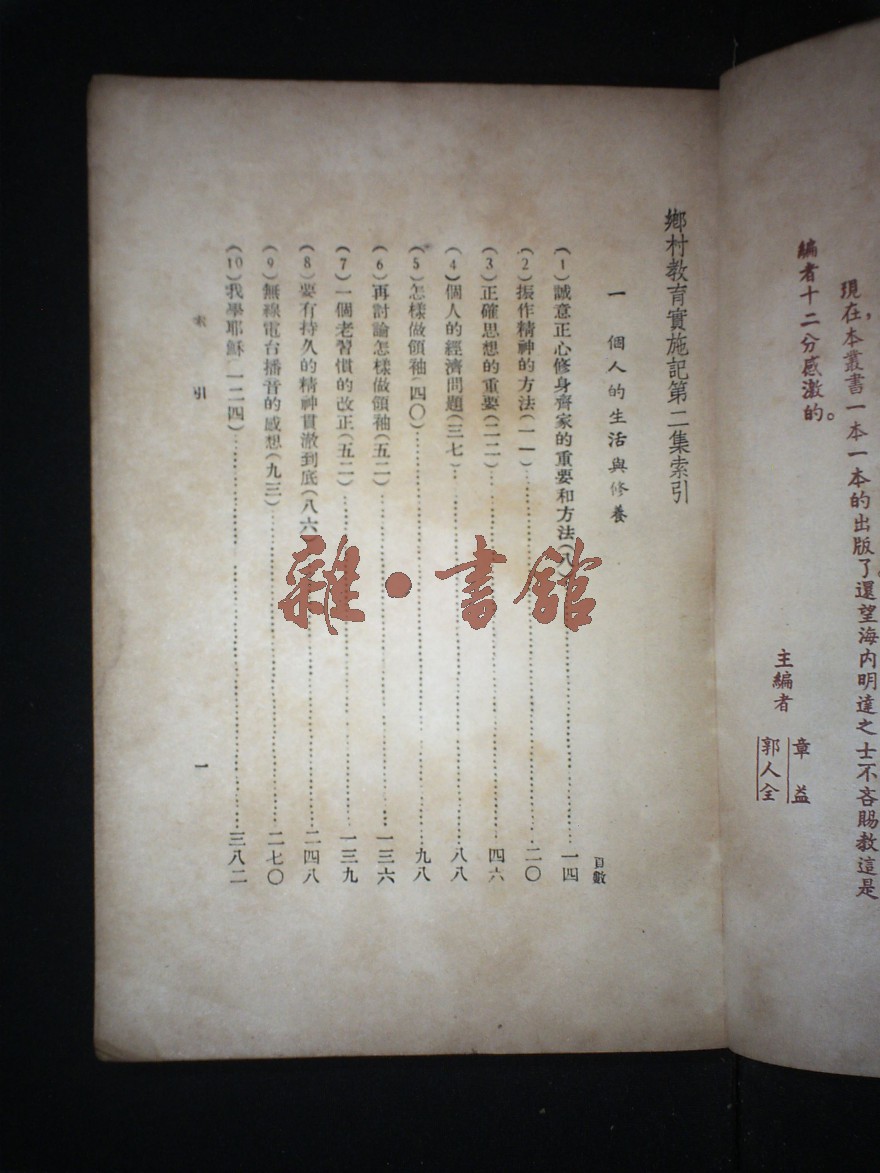 現在本叢書一本一本的出版了還望海內明達之士不吝賜教這是
編者十二分感激的。
主編者
章益
郭人全
鄉村教育實施記第二集索引
一 個人的生活與修養
頁數
(1)誠意正心修身齊家的重要和方法(八)……一四
(2)振作精神的方法(一一)……二〇
(3)正確思想的重要(二二)……四六
(4)個人的經濟問題(三七)……八八
(5)怎樣做領袖(四〇)……九八
(6)再討論怎樣做領袖(五二)……一三六
(7)一個老習慣的改正(五二)……一三九
(8)要有持久的精神貫澈到底(八六)……二四八
(9)無線電台播音的感想(九三)……二七〇
(10)我學耶穌(一二四)……三八二
索引
一
雜·書館